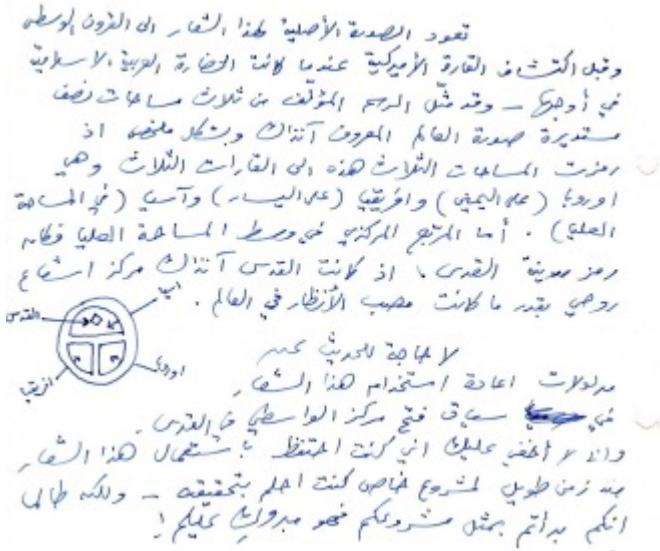 تعود الصورة الأصلية لهذا الشعار الى القرون الوسطى
وقبل اكتشاف القارة الأميركية عندما كانت الحضارة العربية الاسلامية
في أوجها – وقد مثّل الرسم المؤلّف من ثلاث مساحات نصف
مستديرة صورة العالم المعروف آنذاك وبشكل ملخص اذ
رمزت المساحات الثلاث هذه الى القارات الثلاث وهي
اوروبا (على اليمين) وافريقيا (على اليسار) وآسيا (في المساحة
العليا) . أما المربع المركزي في وسط المساحة العليا فكان
رمز مدينة القدس ، اذ كانت القدس آنذاك مركز اشعاع
روحي بقدر ما كانت مصب الأنظار في العالم .
آسيا
القدس
اوروبا
افريقيا
لا حاجة للحديث عن
مدلولات اعادة استخدام هذا الشعار
في سياق فتح مركز الواسطي في القدس .
وانا لا أخفي عليك اني كنت احتفظ باستعمال هذا الشعار
منذ زمن طويل لمشروع خاص كنت احلم بتحقيقه – ولكنه طالما
انكم بدأتم بمثل مشروعكم فهو مبروك عليكم !